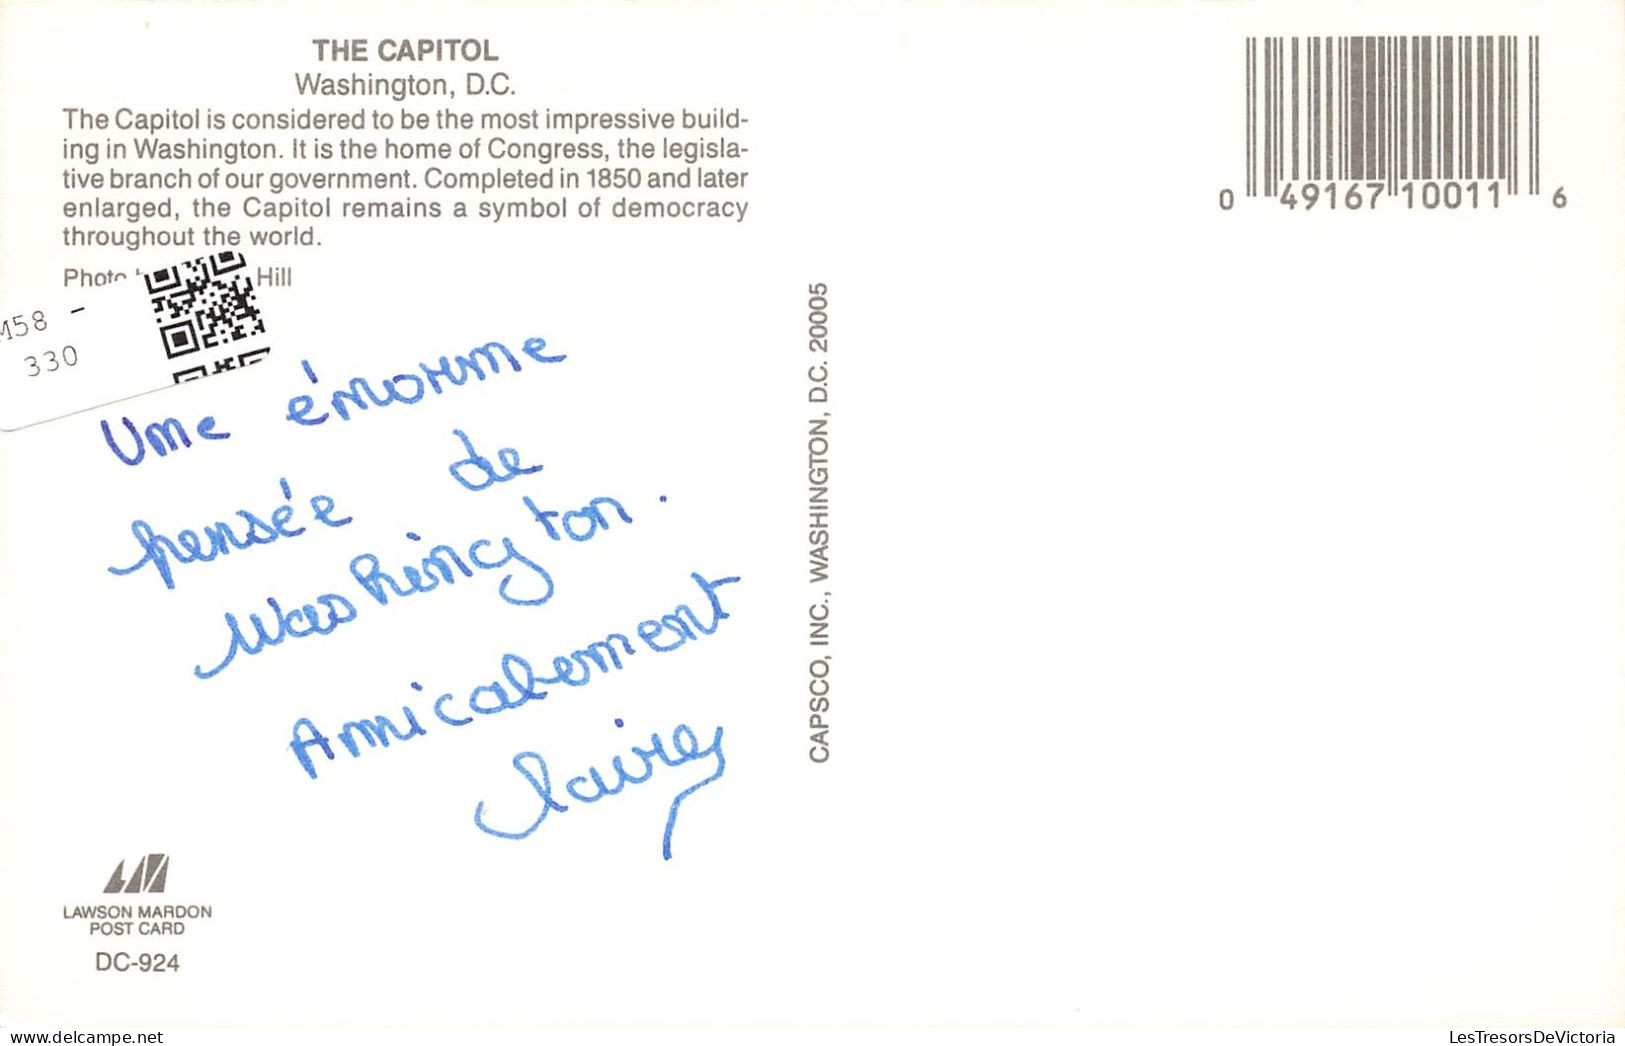 THE CAPITOL
Washington, D.C.
The Capitol is considered to be the most impressive build-
ing in Washington. It is the home of Congress, the legisla-
tive branch of our government. Completed in 1850 and later
enlarged, the Capitol remains a symbol of democracy
throughout the world.
Photo Hill
M58 -
330
Une énorme
pensée de
Washington.
Amicalement
Claire
LAWSON MARDON
POST CARD
DC-924
CAPSCO, INC., WASHINGTON, D.C. 20005
0 49167 10011 6
www.delcampe.net
LesTresorsDeVictoria